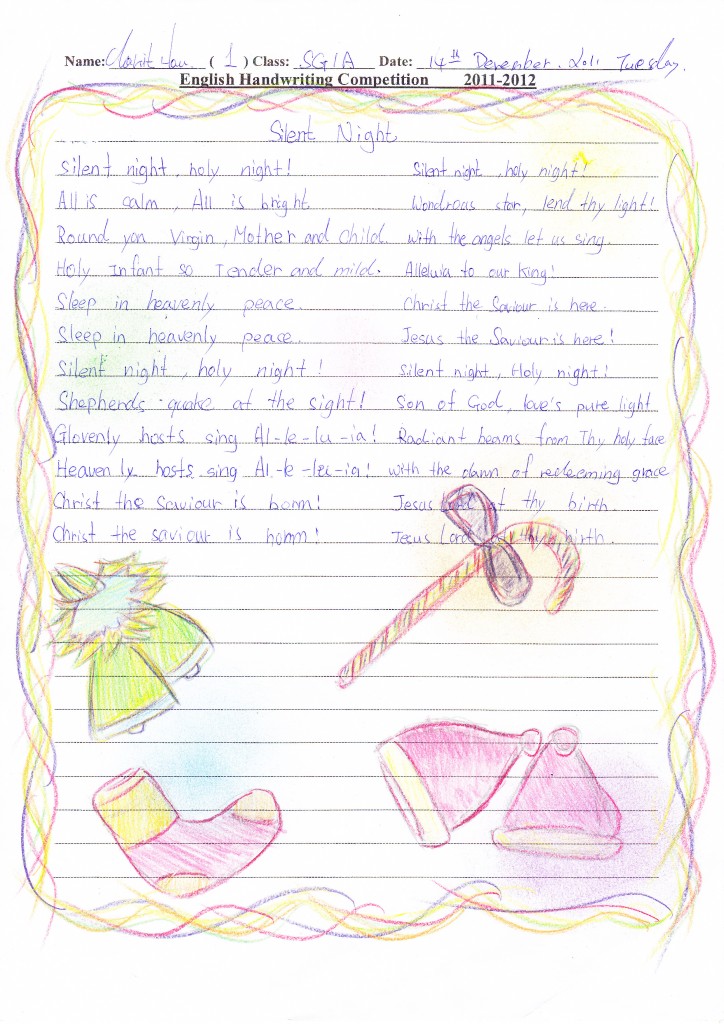 Name: ( 1 ) Class: SG1A Date: 14th December. 2011 Tuesday.
English Handwriting Competition 2011-2012
Silent Night
Silent night, holy night!
All is calm, All is bright
Round yon Virgin, Mother and child.
Holy Infant so Tender and mild.
Sleep in heavenly peace.
Sleep in heavenly peace.
Silent night, holy night!
Shepherds quake at the sight!
Glovenly hosts sing Al-le-lu-ia!
Heavenly hosts sing Al-le-lu-ia!
Christ the Saviour is bonn!
Christ the saviour is honn!
Silent night, holy night!
Wondrous star, lend thy light!
With the angels let us sing.
Alleluia to our King!
Christ the Saviour is here.
Jesus the Saviour is here!
Silent night, Holy night!
Son of God, love's pure light
Radiant beams from Thy holy face
with the dawn of redeeming grace
Jesus Lord at thy birth.
Jesus Lord at thy birth.